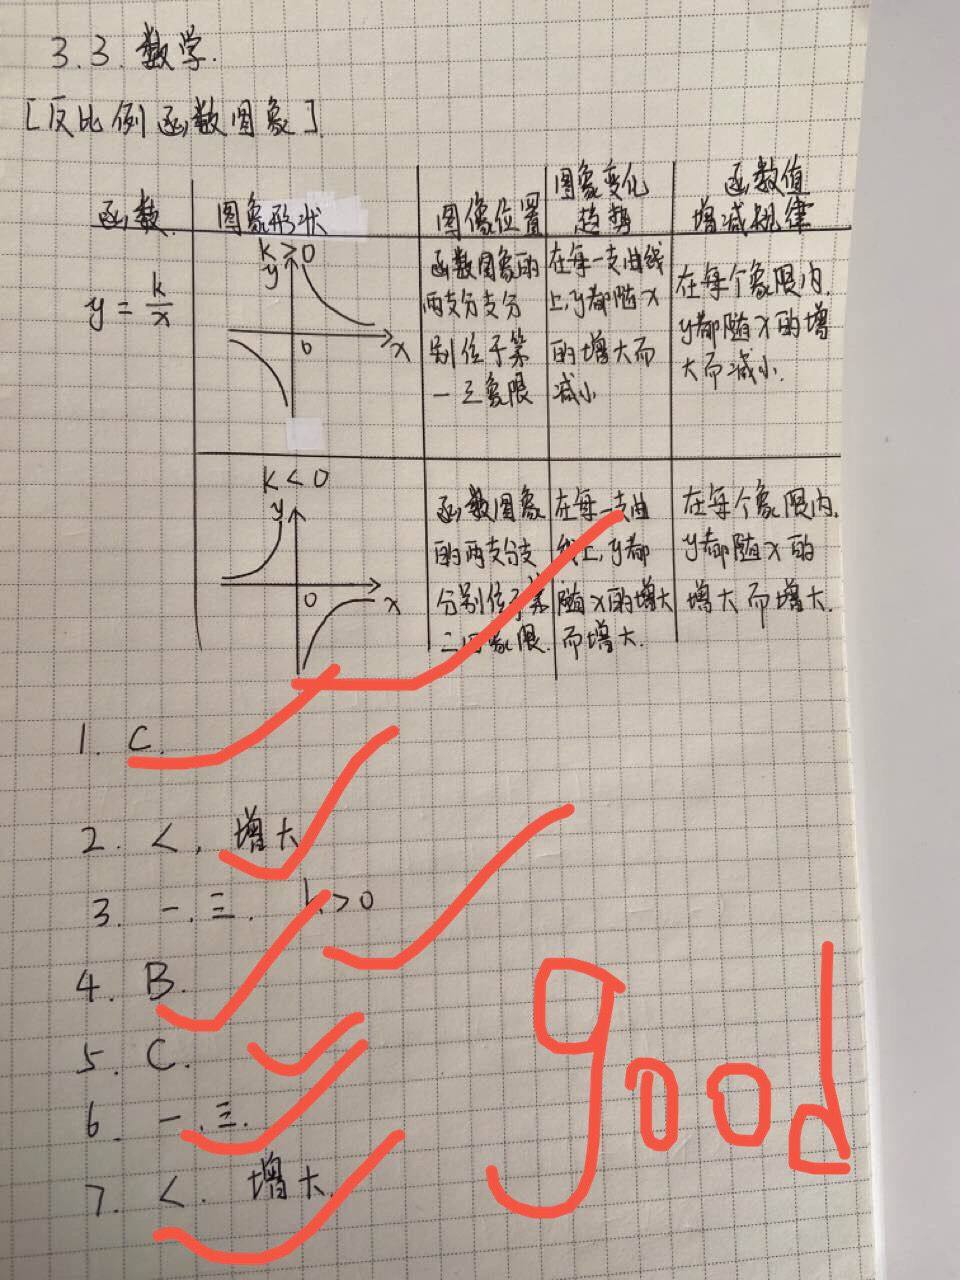 3.3. 数学.
[反比例函数图象]
函数.
图象形状
图像位置
图象变化
趋势
函数值
增减规律
y = k/x
k > 0
y
0
x
函数图象的
两支分支分
别位于第
一三象限
在每一支曲线
上,y都随x
的增大而
减小
在每个象限内,
y都随x的增
大而减小.
k < 0
y
0
x
函数图象
的两支分支
分别位于第
二四象限.
在每一支曲
线上,y都
随x的增大
而增大.
在每个象限内,
y都随x的
增大而增大.
1. C.
2. <, 增大
3. 一.三. k>0
4. B.
5. C.
6. 一.三.
7. <. 增大.
good